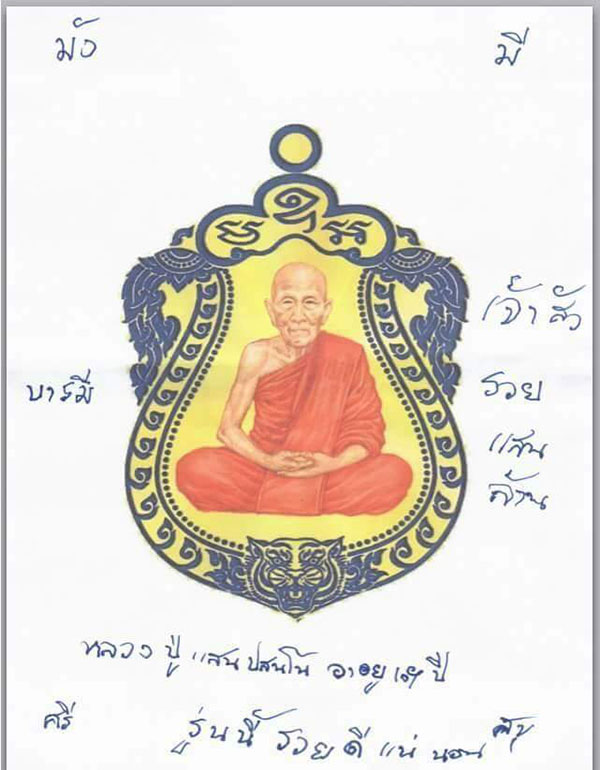 มั่ง
มี
เจ้าสัว
บารมี
รวย
แสน
ล้าน
หลวงปู่แสน ปสนฺโน อายุ ปี
ศรี
รุ่นนี้ รวยดีแน่นอน